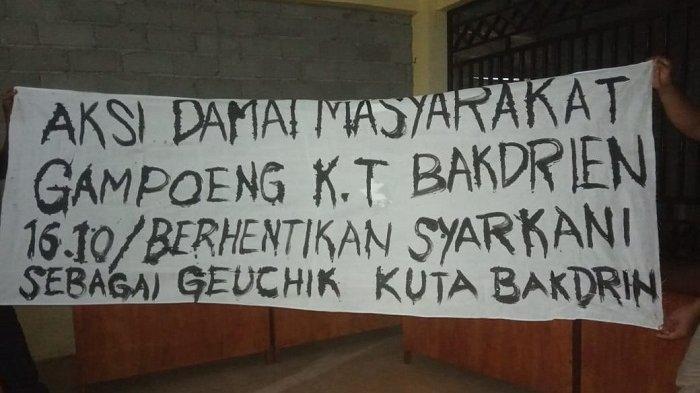 AKSI DAMAI MASYARAKAT
GAMPOENG K.T BAKDRIEN
16.10/BERHENTIKAN SYARKANI
SEBAGAI GEUCHIK KUTA BAKDRIN